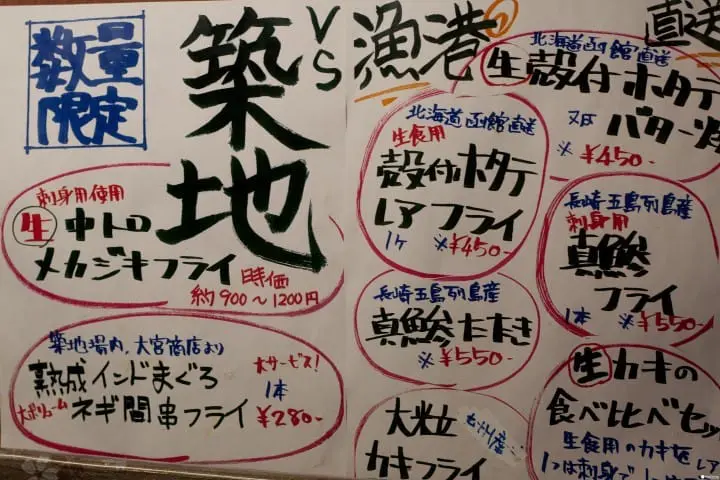 数量
限定
築地
VS
漁港
直送
刺身用使用
生 中トロ
メカジキフライ
時価
約900〜1200円
築地場内、大宮商店より
熟成インドまぐろ
大サービス!
大ボリューム ネギ間串フライ
1本
¥280-
北海道函館直送
生 殻付ホタテ
バター焼
※¥450-
北海道函館直送
生食用
殻付ホタテ
レアフライ
1ヶ ※¥450-
長崎五島列島産
刺身用
真鯵
フライ
1本 ※¥550-
長崎五島列島産
真鯵たたき
※¥550-
大粒
カキフライ
生 カキの
食べ比べセッ
生食用のカキを レア
1つは刺身で